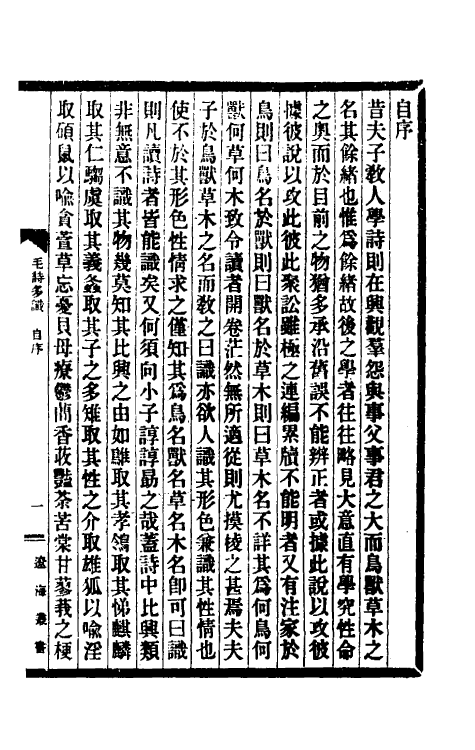 自序
昔夫子敎人學詩則在興觀羣怨與事父事君之大而鳥獸草木之
名其餘緒也惟爲餘緒故後之學者往往略見大意直有學究性命
之奧而於目前之物猶多承沿舊誤不能辨正者或據此說以攻彼
據彼說以攻此彼此聚訟雖極之連編累牘不能明者又有注家於
鳥則曰鳥名於獸則曰獸名於草木則曰草木名不詳其爲何鳥何
獸何草何木致令讀者開卷茫然無所適從則尤摸棱之甚焉夫夫
子於鳥獸草木之名而敎之曰識亦欲人識其形色兼識其性情也
使不於其形色性情求之僅知其爲鳥名獸名草名木名卽可曰識
則凡讀詩者皆能識矣又何須向小子諄諄勗之哉蓋詩中比興類
非無意不識其物幾莫知其比興之由如雎取其孝鴒取其悌麒麟
取其仁騶虞取其義螽取其子之多雉取其性之介取雄狐以喩淫
取碩鼠以喩貪萱草忘憂貝母療鬱蕳香荍豔荼苦棠甘蓼莪之梗
毛詩多識 自序
一
遼海叢書